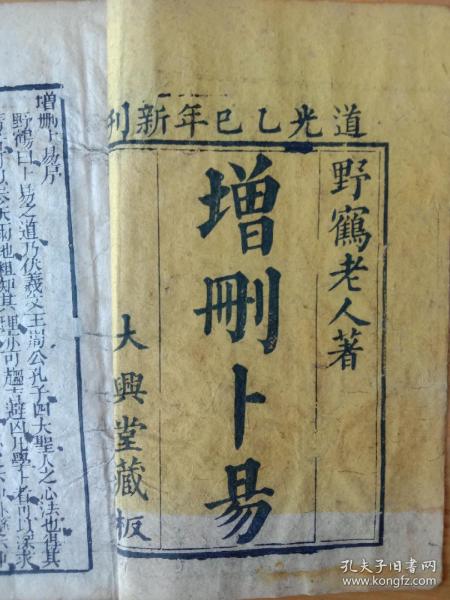 道光乙巳年新刊
野鶴老人著
增刪卜易
大興堂藏板
增刪卜易序
野鶴曰卜易之道乃伏羲文王周公孔子四大聖人之心法也得其
可趨吉避凶凡學卜者可以深求
孔夫子旧书网
www.kongfz.com